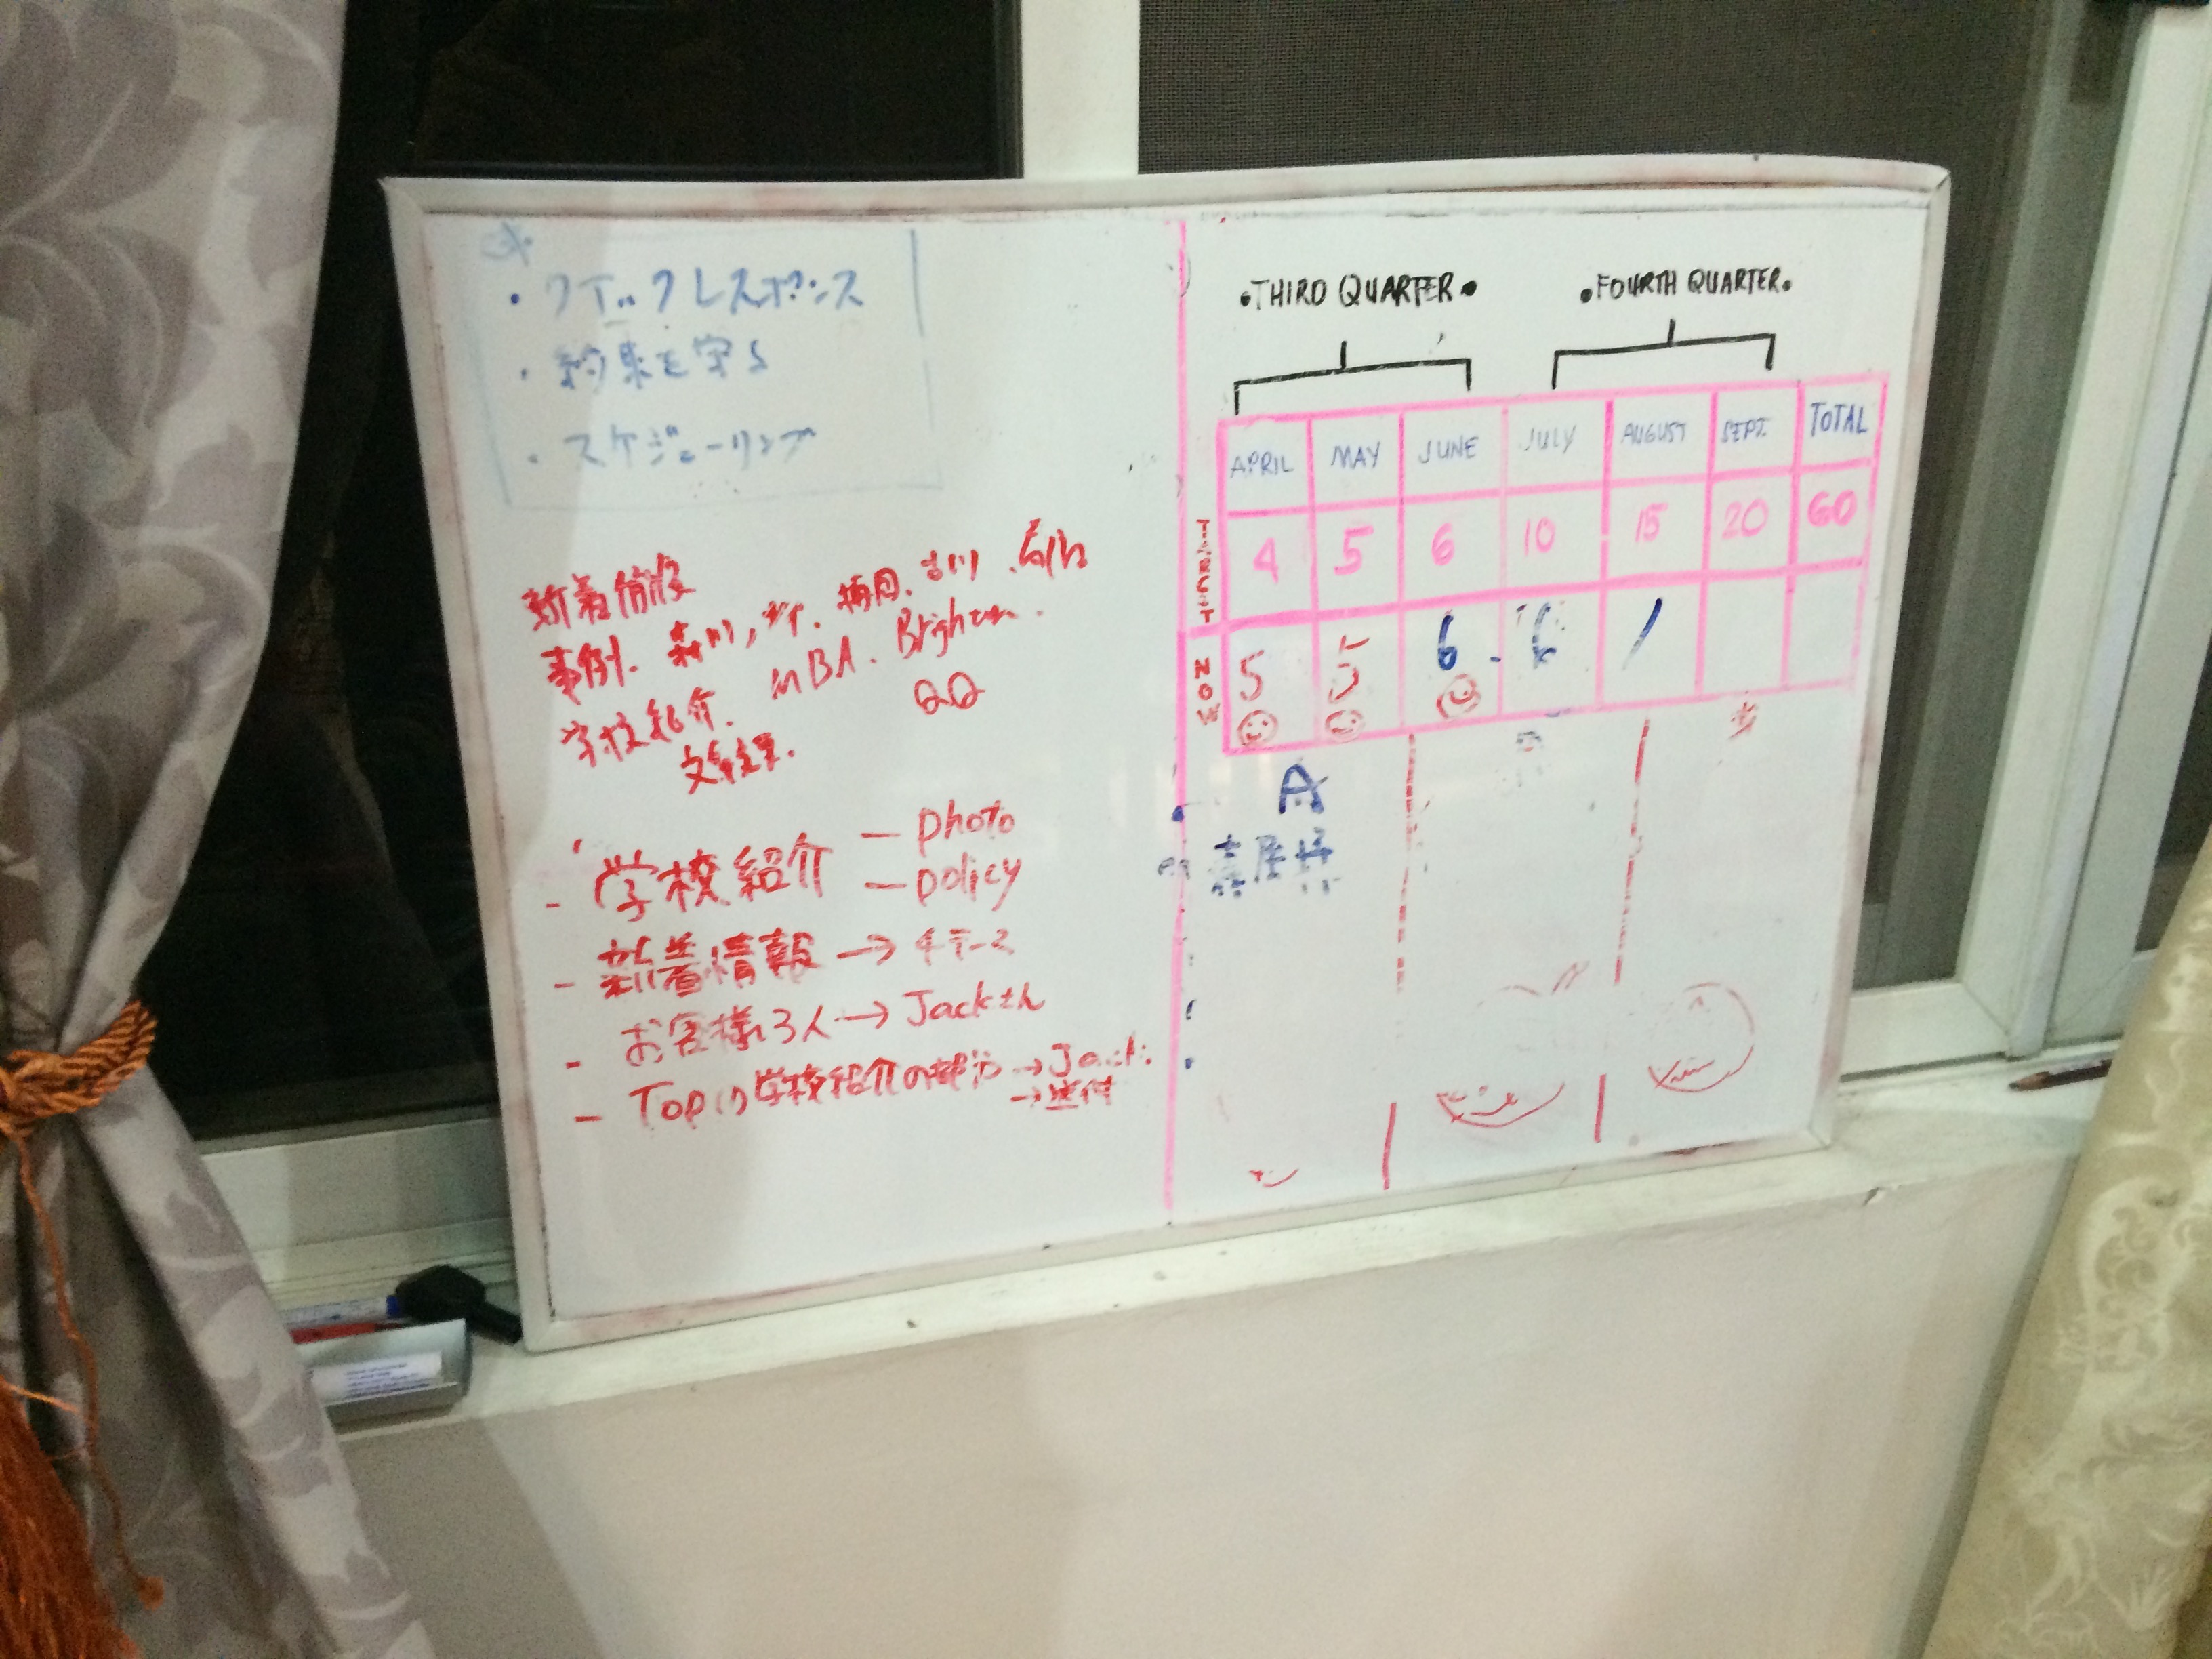 ・クイックレスポンス
・約束を守る
・スケジューリング
新着情報
事例.
学校紹介. MBA. Brighton.
QQ
- 学校紹介 — photo
— policy
- 新着情報 →
- お客様3人 → Jackさん
- Topの学校紹介の部分 → Jack
→ 送付
•THIRD QUARTER•
•FOURTH QUARTER•
APRIL MAY JUNE JULY AUGUST SEPT. TOTAL
TARGET 4 5 6 10 15 20 60
NOW 5 5 6 6 1
A